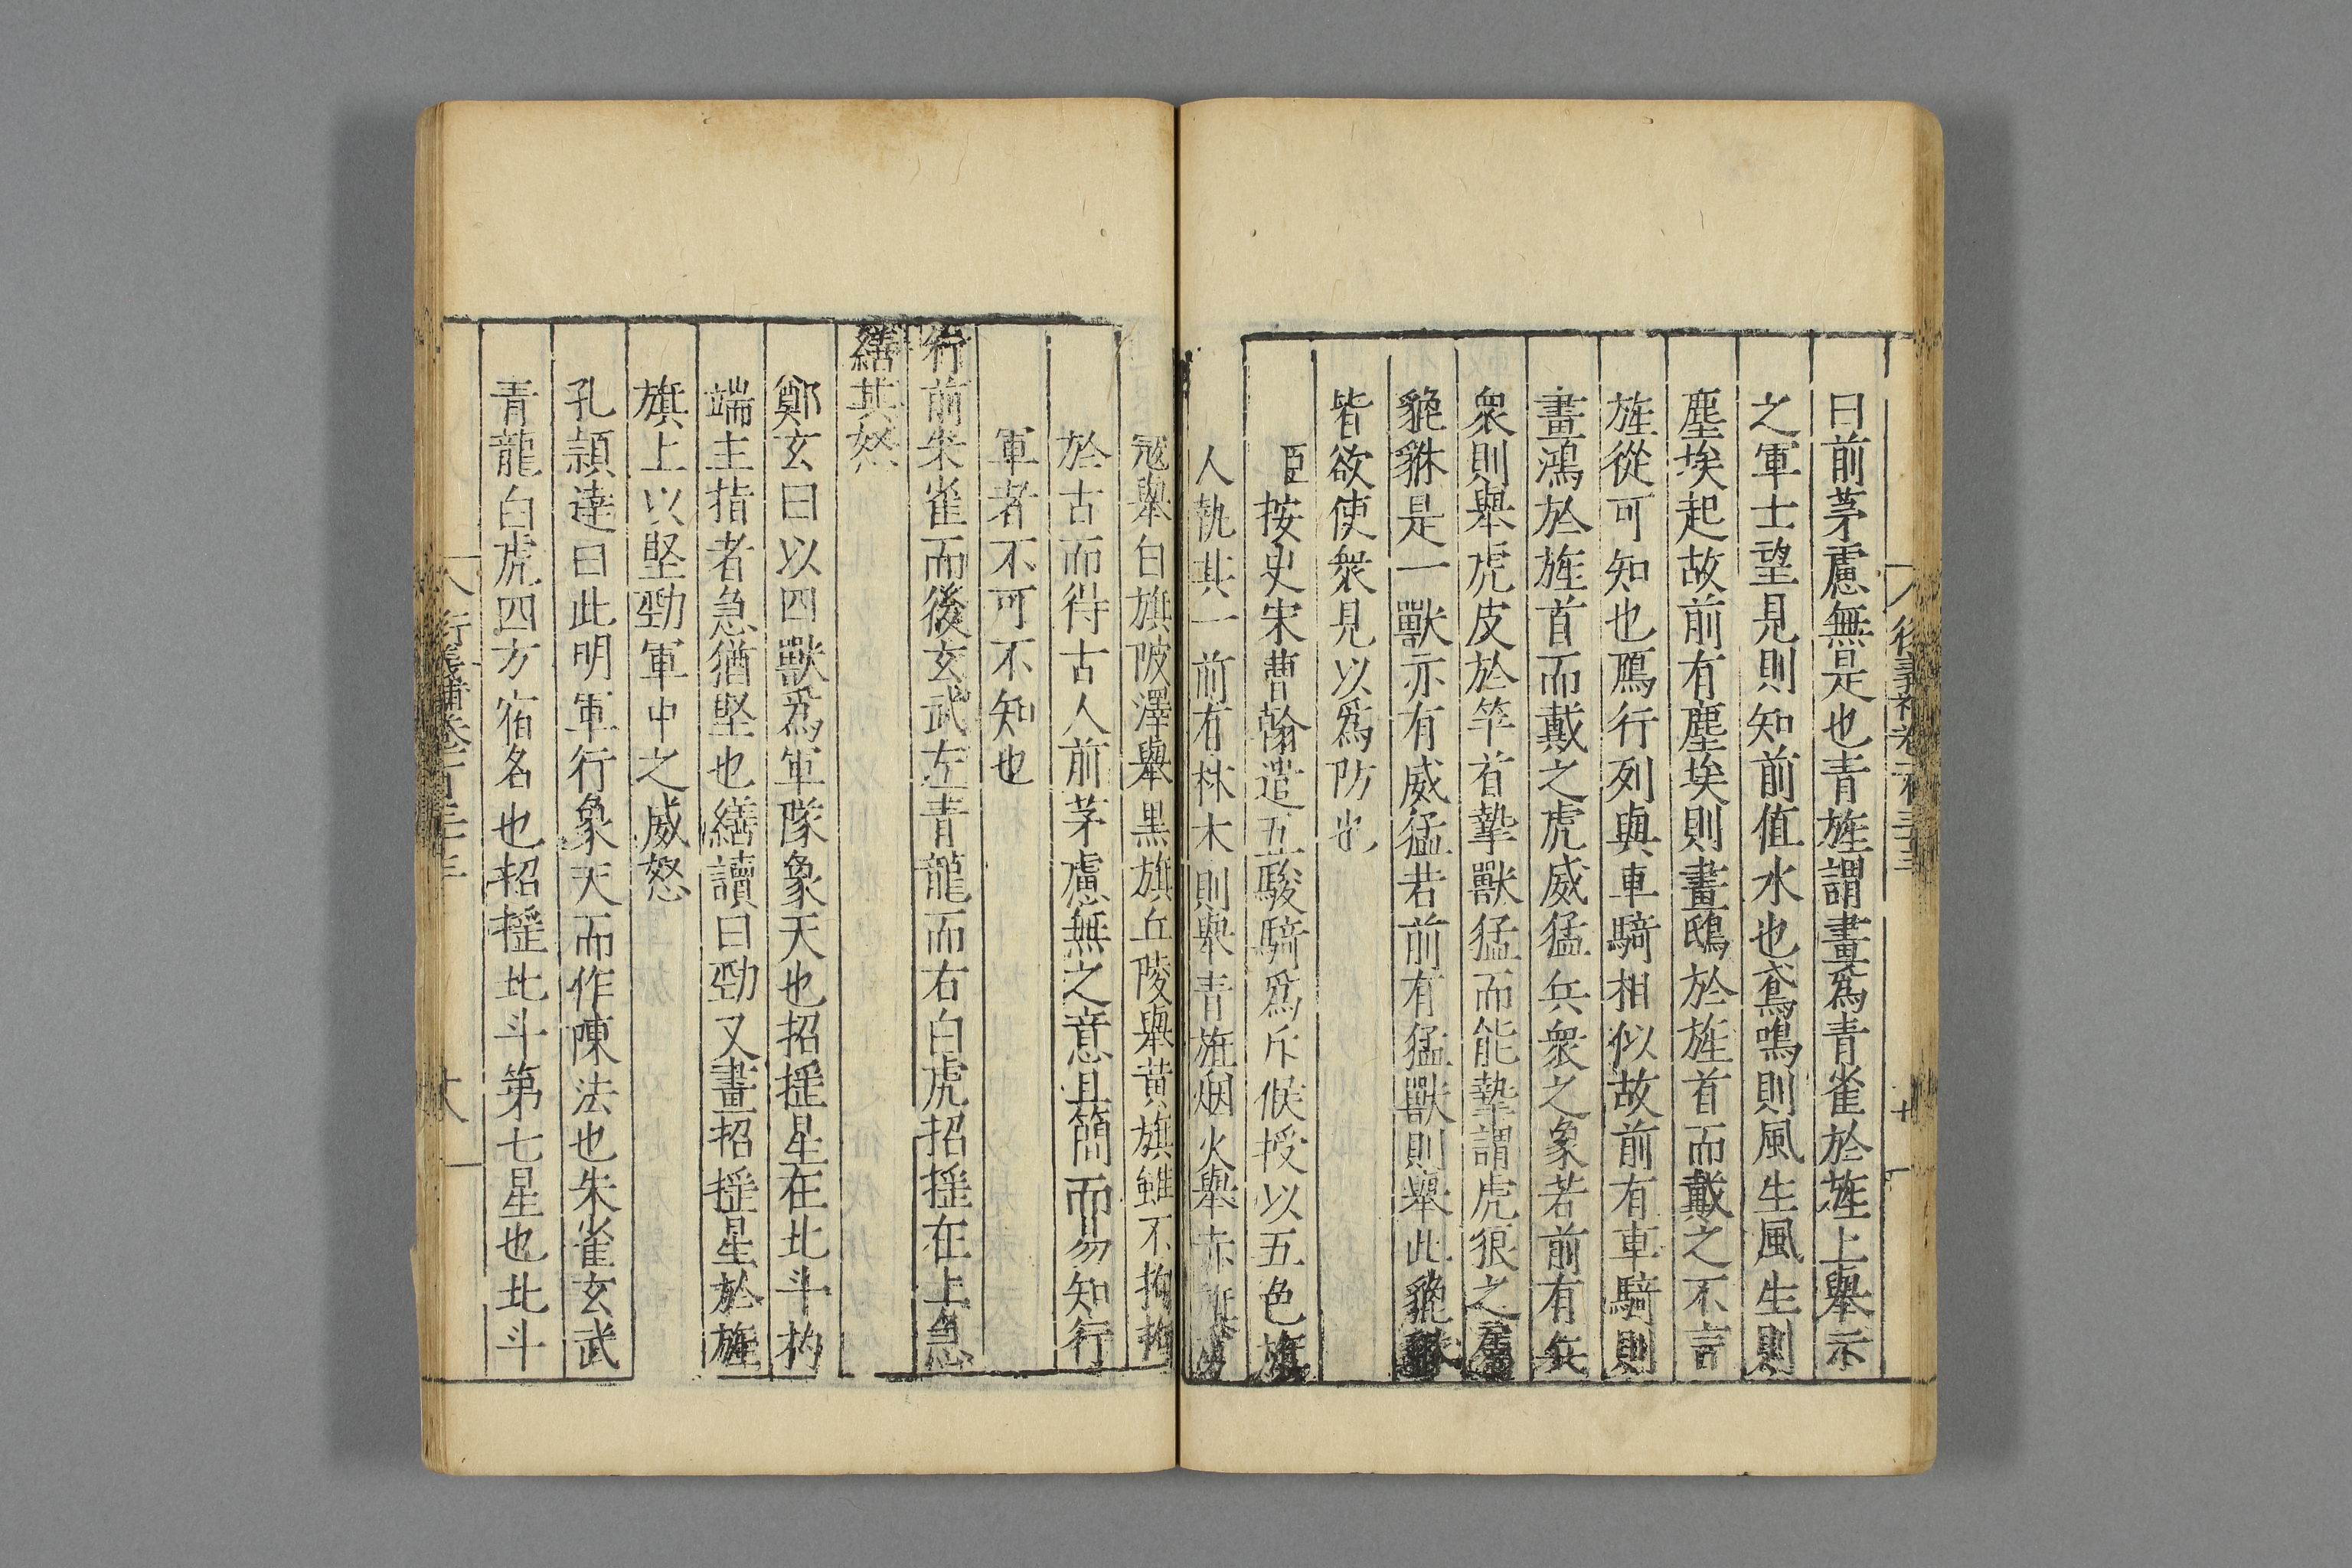 曰前茅慮無是也青旌謂畫爲青雀於旌上舉示
之軍士望見則知前值水也鳶鳴則風生風生則
塵埃起故前有塵埃則畫鴟於旌首而戴之不言
旌從可知也鴈行列與車騎相似故前有車騎則
畫鴻於旌首而戴之虎威猛兵衆之象若前有兵
衆則舉虎皮於竿首摯獸猛而能摯謂虎狼之屬
貔貅是一獸亦有威猛若前有猛獸則舉此貔貅
皆欲使衆見以爲防也
臣按史宋曹翰遣五駿騎爲斥候授以五色旗
人執其一前有林木則舉青旌烟火舉赤旗
寇舉白旗陂澤舉黑旗丘陵舉黃旗雖不拘拘
於古而待古人前茅慮無之意且簡而易知行
軍者不可不知也
行前朱雀而後玄武左青龍而右白虎招搖在上急
繕其怒
鄭玄曰以四獸爲軍隊象天也招搖星在北斗杓
端主指者急猶堅也繕讀曰勁又畫招搖星於旌
旗上以堅勁軍中之威怒
孔頴達曰此明軍行象天而作陳法也朱雀玄武
青龍白虎四方宿名也招搖北斗第七星也北斗